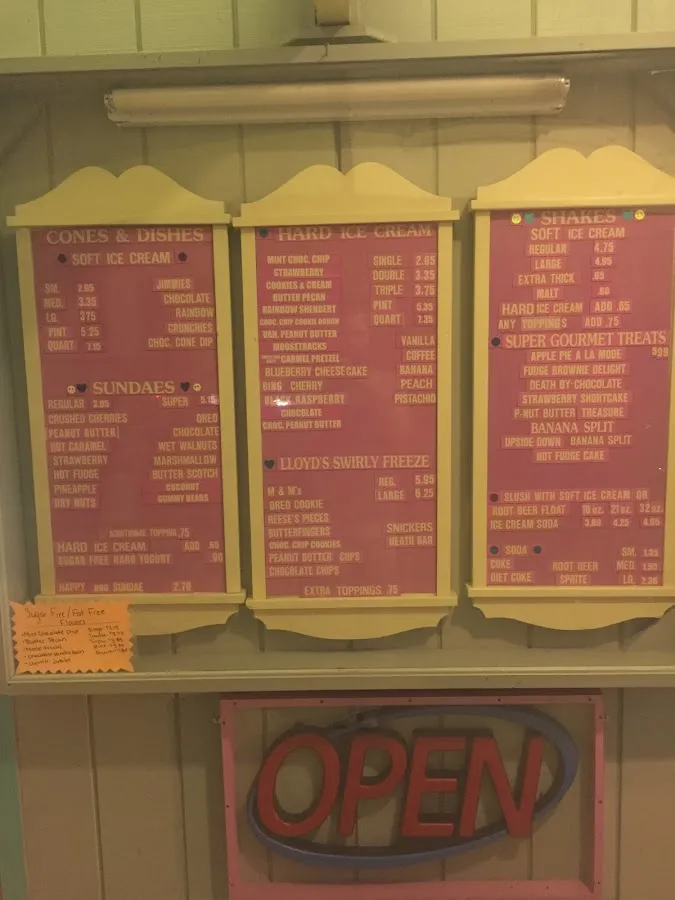 CONES & DISHES
SOFT ICE CREAM
SM. 2.95 JIMMIES
MED. 3.35 CHOCOLATE
LG. 375 RAINBOW
PINT 5.25 CRUNCHIES
QUART 7.15 CHOC. CONE DIP
SUNDAES
REGULAR 3.95 SUPER 5.15
CRUSHED CHERRIES OREO
PEANUT BUTTER CHOCOLATE
HOT CARAMEL WET WALNUTS
STRAWBERRY MARSHMALLOW
HOT FUDGE BUTTER SCOTCH
PINEAPPLE COCONUT
DRY NUTS GUMMY BEARS
TOPPING .75
HARD ICE CREAM ADD .65
SUGAR FREE HARD YOGURT .90
HAPPY DOG SUNDAE 2.70
HARD ICE CREAM
MINT CHOC. CHIP SINGLE 2.85
STRAWBERRY DOUBLE 3.35
COOKIES & CREAM TRIPLE 3.75
BUTTER PECAN PINT 5.35
RAINBOW SHERBERT QUART 7.35
CHOC. CHIP COOKIE DOUGH
VAN. PEANUT BUTTER VANILLA
MOOSETRACKS COFFEE
CARMEL PRETZEL BANANA
BLUEBERRY CHEESECAKE PEACH
BING CHERRY PISTACHIO
BLACK RASPBERRY
CHOCOLATE
CHOC. PEANUT BUTTER
LLOYD'S SWIRLY FREEZE
REG. 5.95
M & M's LARGE 6.25
OREO COOKIE
REESE'S PIECES
BUTTERFINGERS SNICKERS
CHOC. CHIP COOKIES HEATH BAR
PEANUT BUTTER CUPS
CHOCOLATE CHIPS
EXTRA TOPPINGS .75
SHAKES
SOFT ICE CREAM
REGULAR 4.75
LARGE 4.95
EXTRA THICK .65
MALT .60
HARD ICE CREAM ADD .65
ANY TOPPINGS ADD .75
SUPER GOURMET TREATS
APPLE PIE A LA MODE 599
FUDGE BROWNIE DELIGHT
DEATH BY CHOCOLATE
STRAWBERRY SHORTCAKE
P-NUT BUTTER TREASURE
BANANA SPLIT
UPSIDE DOWN BANANA SPLIT
HOT FUDGE CAKE
SLUSH WITH SOFT ICE CREAM OR
ROOT BEER FLOAT 16 oz. 21 oz. 32 oz.
ICE CREAM SODA 3.80 4.25 4.65
SODA SM. 1.35
COKE ROOT BEER MED. 1.90
DIET COKE SPRITE LG. 2.30
Sugar Free/Fat Free
Flavors
Butter Pecan
OPEN